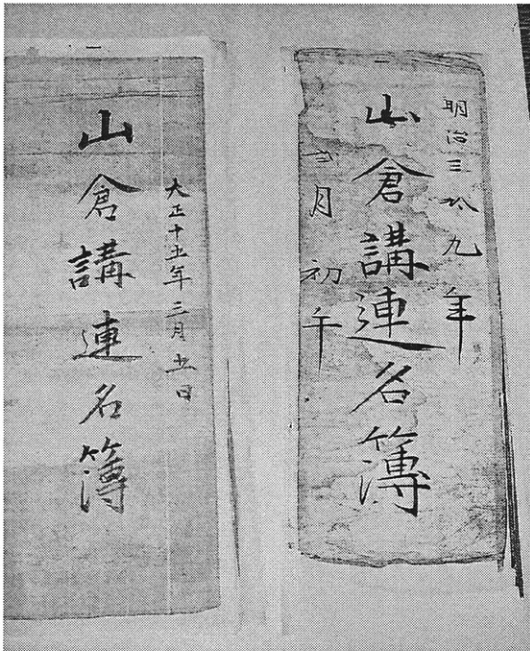 明治三拾九年
山倉講連名簿
月初午
大正十五年三月五日
山倉講連名簿